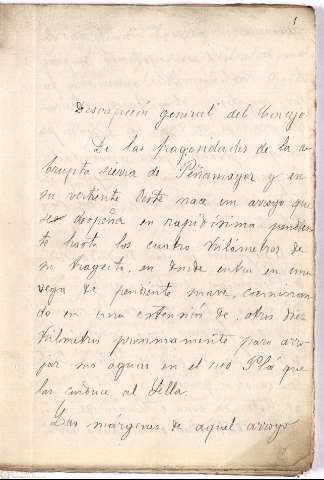 1
Descripción general del Concejo
De las fragosidades de la a-
brupta sierra de Peñamayor y en
su vertiente Oeste nace un arroyo que
se despeña en rapidísima pendien-
te hasta los cuatro kilómetros de
su trayecto, en donde entra en una
vega de pendiente suave, caminan-
do en una extensión de otros diez
kilómetros proximamente para arro-
jar sus aguas en el rio Plá que
las conduce al Sella.
Las márgenes de aquel arroyo